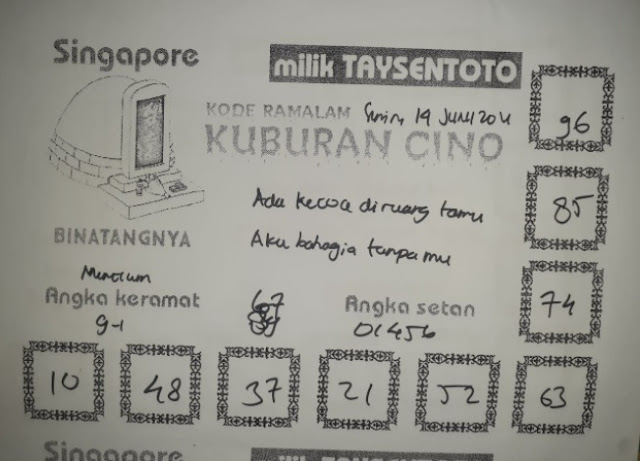 Singapore
milik TAYSENTOTO
KODE RAMALAM Senin, 19 Juni 20
KUBURAN CINO
96
Ada kecoa diruang tamu
85
BINATANGNYA
Aku bahagia tanpa mu
Angka keramat 67 Angka setan
74
9-1 01456
10 48 37 21 52 63
Singapore